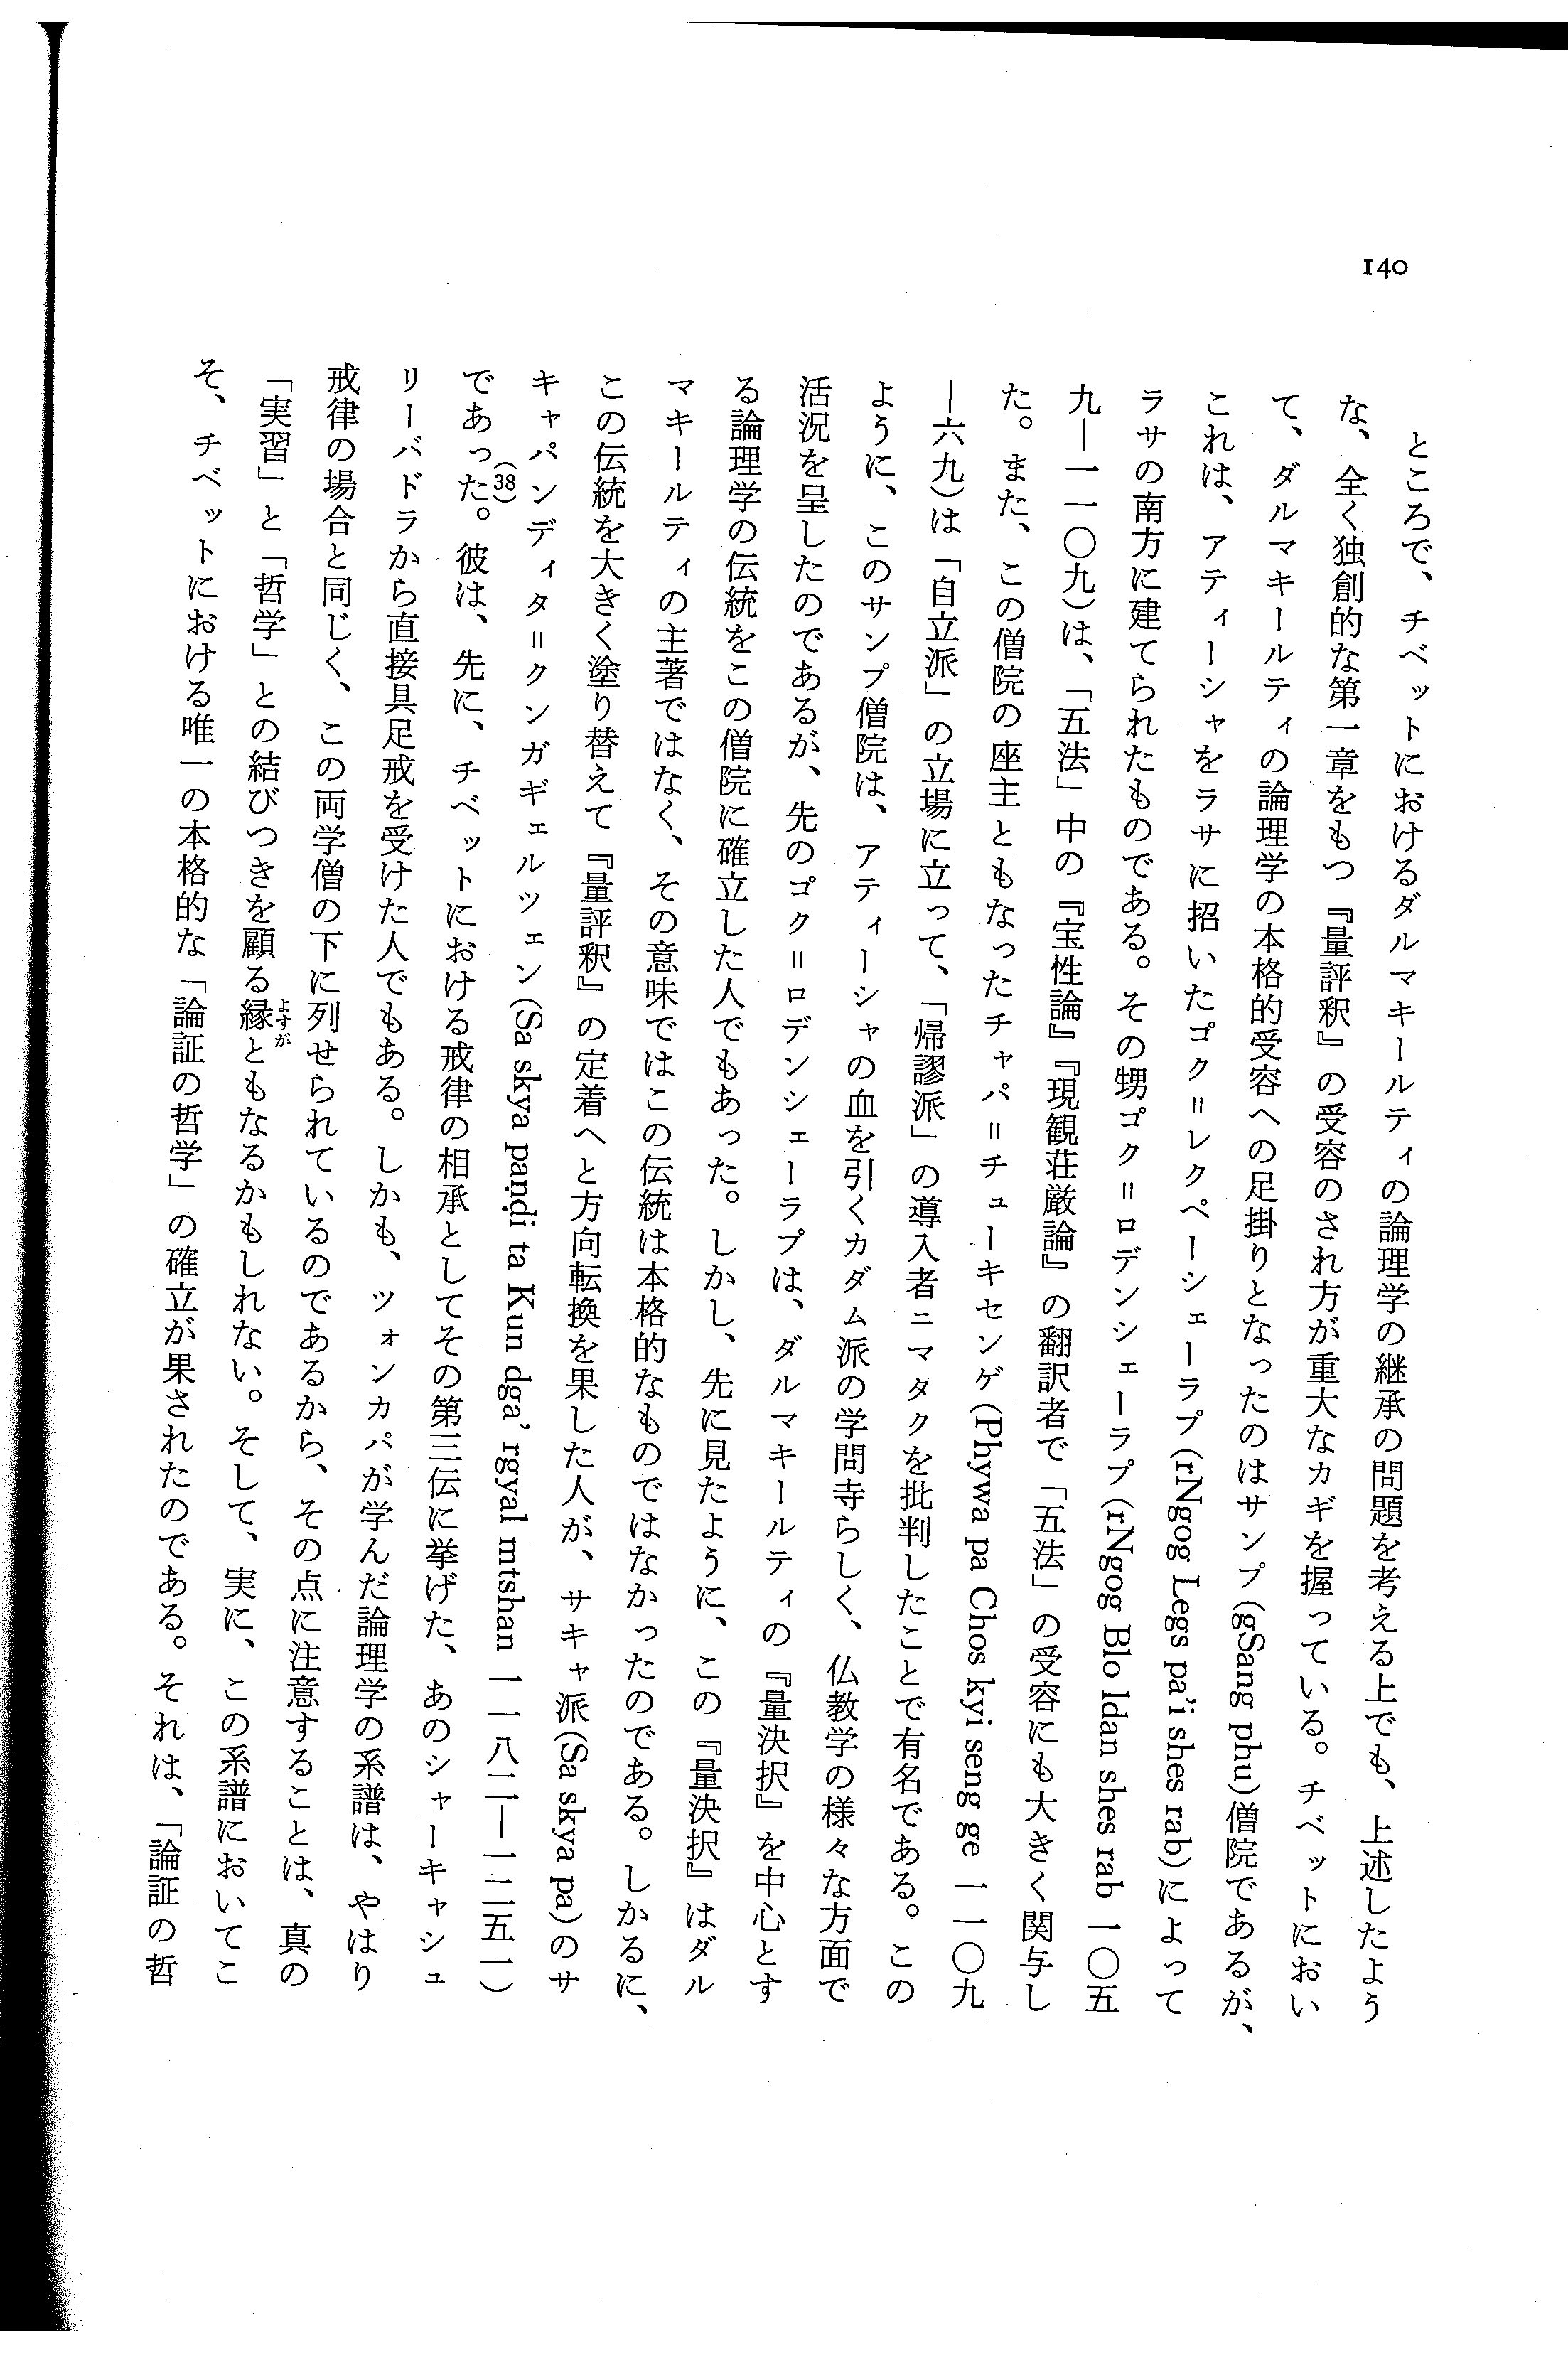 140
ところで、チベットにおけるダルマキールティの論理学の継承の問題を考える上でも、上述したよう
な、全く独創的な第一章をもつ『量評釈』の受容のされ方が重大なカギを握っている。チベットにおい
て、ダルマキールティの論理学の本格的受容への足掛りとなったのはサンプ(gSang phu)僧院であるが、
これは、アティーシャをラサに招いたゴク＝レクペーシェーラプ(rNgog Legs pa'i shes rab)によって
ラサの南方に建てられたものである。その甥ゴク＝ロデンシェーラプ(rNgog Blo ldan shes rab 一〇五
九—一一〇九)は、「五法」中の『宝性論』『現観荘厳論』の翻訳者で「五法」の受容にも大きく関与し
た。また、この僧院の座主ともなったチャパ＝チューキセンゲ(Phywa pa Chos kyi seng ge 一一〇九
—六九)は「自立派」の立場に立って、「帰謬派」の導入者ニマタクを批判したことで有名である。この
ように、このサンプ僧院は、アティーシャの血を引くカダム派の学問寺らしく、仏教学の様々な方面で
活況を呈したのであるが、先のゴク＝ロデンシェーラプは、ダルマキールティの『量決択』を中心とす
る論理学の伝統をこの僧院に確立した人でもあった。しかし、先に見たように、この『量決択』はダル
マキールティの主著ではなく、その意味ではこの伝統は本格的なものではなかったのである。しかるに、
この伝統を大きく塗り替えて『量評釈』の定着へと方向転換を果した人が、サキャ派(Sa skya pa)のサ
キャパンディタ＝クンガギェルツェン(Sa skya paṇḍi ta Kun dga' rgyal mtshan 一一八二—一二五一)
であった(38)。彼は、先に、チベットにおける戒律の相承としてその第三伝に挙げた、あのシャーキャシュ
リーバドラから直接具足戒を受けた人でもある。しかも、ツォンカパが学んだ論理学の系譜は、やはり
戒律の場合と同じく、この両学僧の下に列せられているのであるから、その点に注意することは、真の
「実習」と「哲学」との結びつきを顧る縁よすがともなるかもしれない。そして、実に、この系譜においてこ
そ、チベットにおける唯一の本格的な「論証の哲学」の確立が果されたのである。それは、「論証の哲